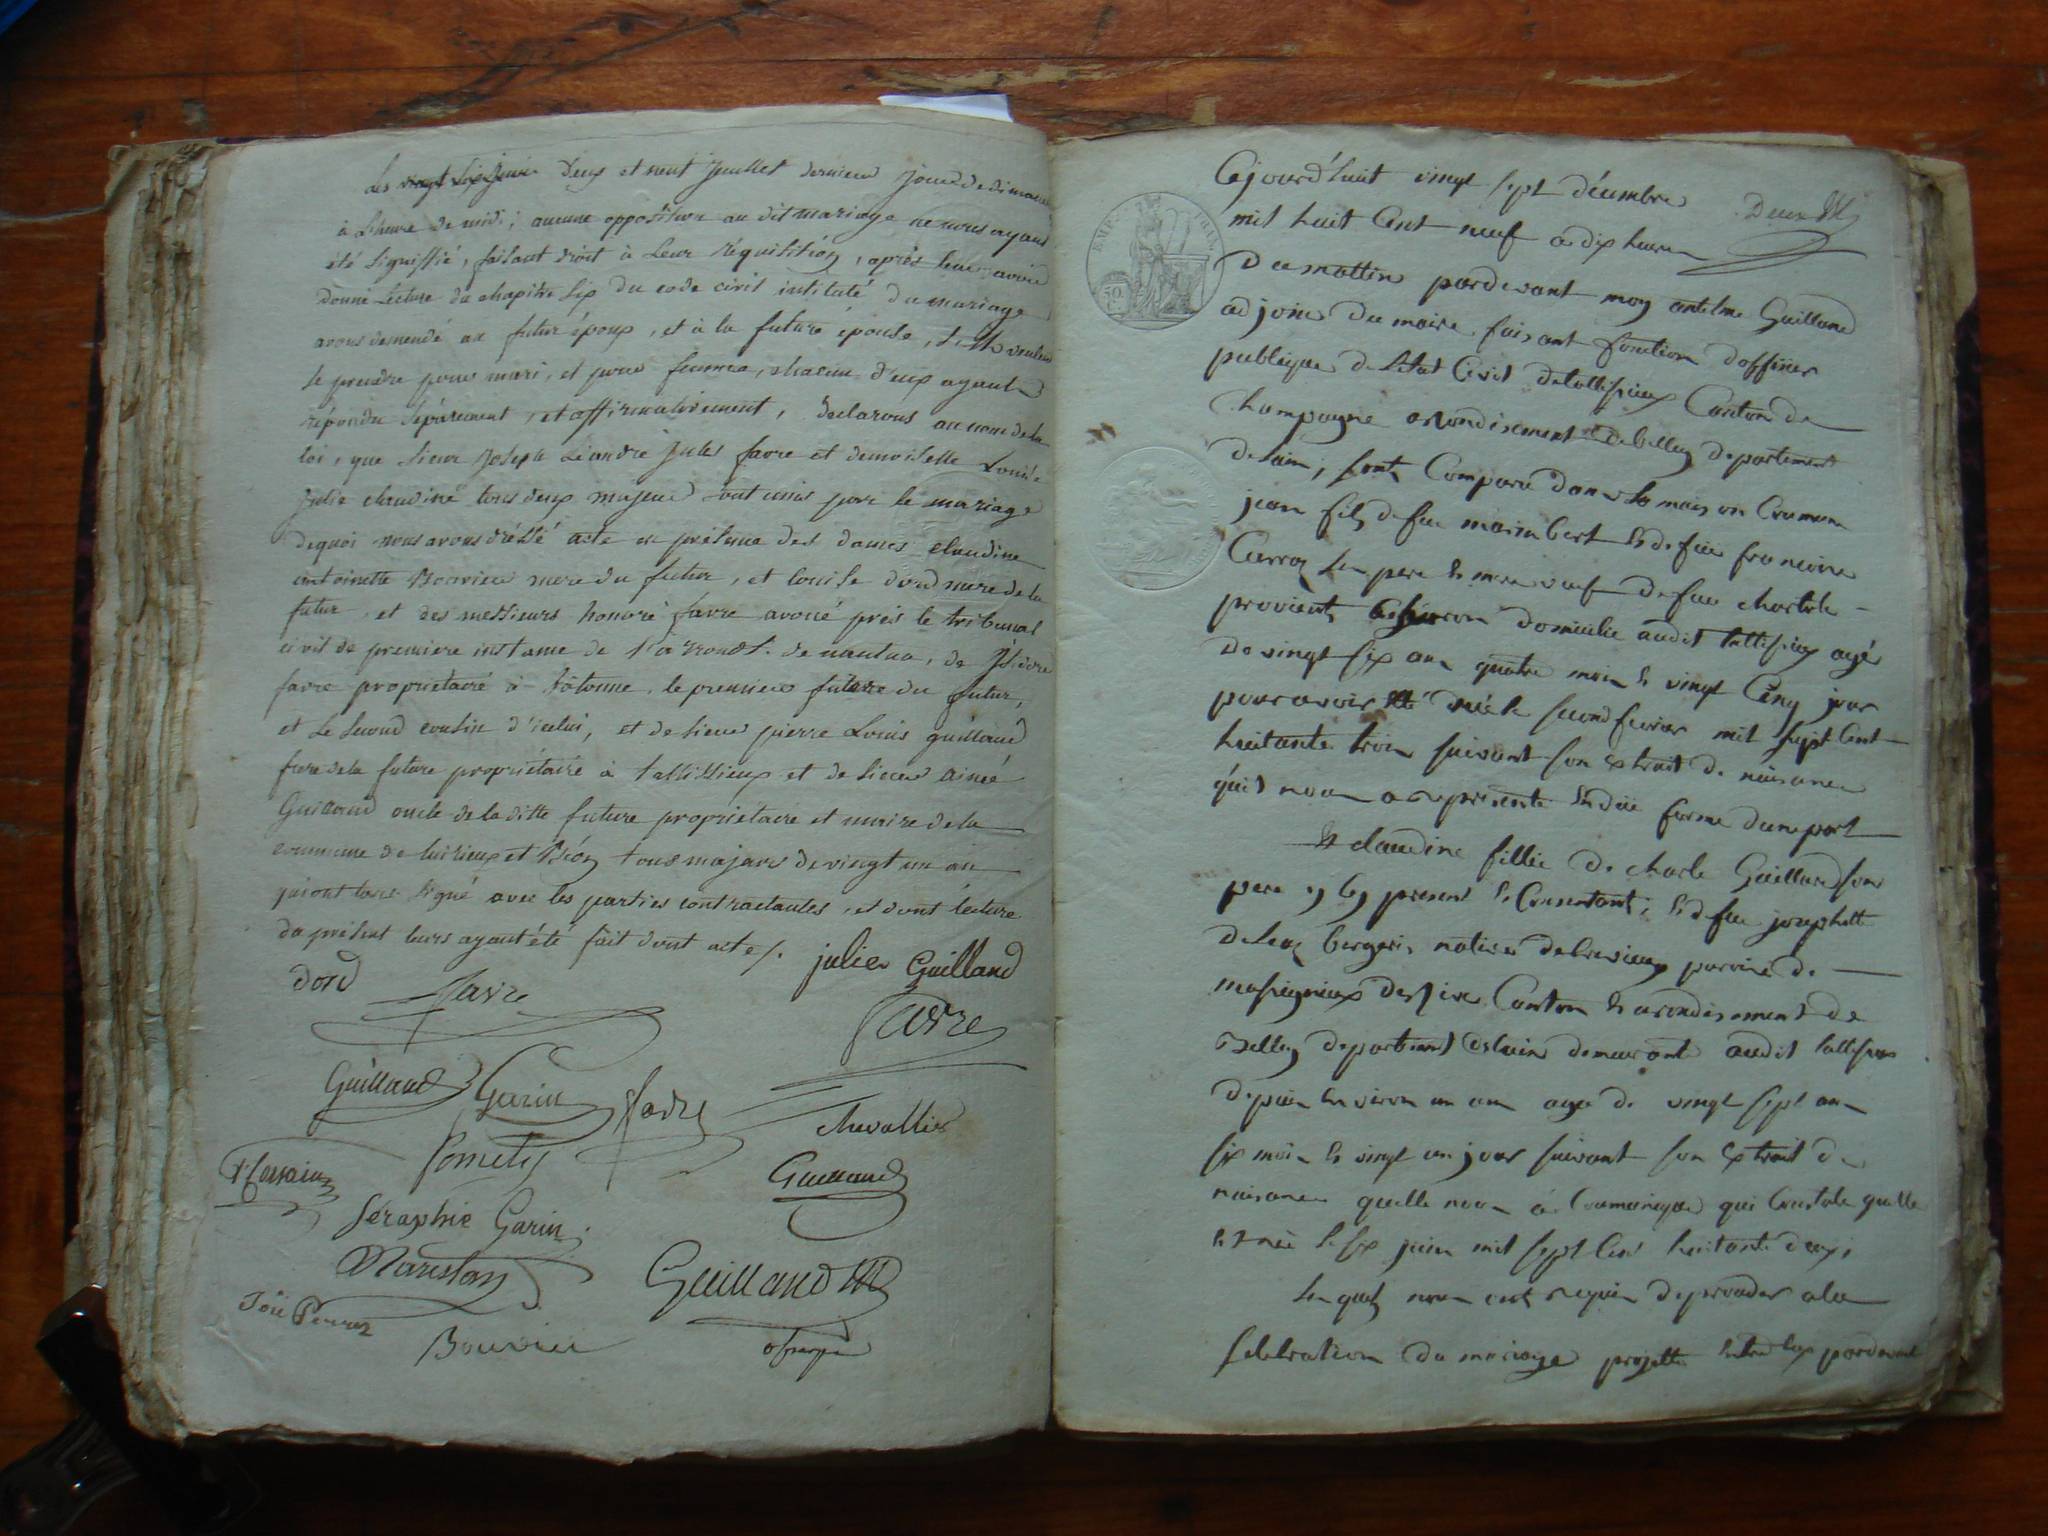 les vingt six juin deux et neuf Juillet dernier jour de dimanche
à L'heure de midi; aucune opposition au dit mariage ne nous ayant
été signiffié, faisant droit à Leur réquisition, après leur avoir
donné Lecture du chapitre six du code civil intitulé du mariage
avons demandé au futur époux, et à la future épouse, s'ils veulent
se prendre pour mari, et pour femme, chacun d'eux ayant
répondu séparément, et affirmativement, declarons au nom de la
loi, que sieur Joseph Léandre Jules favre et demoiselle Louise
Julie claudine tous deux majeur sont unis par le mariage
dequoi nous avons dréssé acte en présence des dames claudine
antoinette Bouvier mere du futur, et louise dord mere de la
futur, et des messieurs honoré favre avoué près le tribunal
civil de premiere instance de l'arrondt. de nantua, de Jsidore
favre propriétaire à Sotonne, le premier frere du futur,
et Le second cousin d'icelui, et de sieur pierre Louis guilland
frere de la future propriétaire à tallissieux et de sieur aimé
Guilland oncle de la ditte future propriétaire et maire de la
commune de luirieux et Béon tous majeurs de vingt un an
qui ont tous signé avec les parties contractantes, et dont lecture
du présent leurs ayant été fait dont acte /.
julie Guilland
dord
favre
favre
Guilland
Garin
favre
Chevallier
Guilland
Séraphie Garin
Guilland
Bouvier
EMP. FRAN.
Cejourd'huit vingt sept décembre
Deux
mil huit Cent neuf a dix heure
Du mattin pardevant moy antelme Guilland
adjoint Du maire, faisant fonction d'officier
publique De l'état Civil de tallissieux Canton de
Champagne arrondisement de belley departement
De lain, sont Comparu dans la maison Commune
jean fils de feu maximbert & de feüe francoise
Carroz ses pere & mere veuf De feue charlotte
provient domicilie audit tallissieux agé
De vingt six ans quatre mois & vingt Cinq jour
pour avoir été né le second fevrier mil sept Cent
huitante trois suivant son extrait de naisance
qu'il nous a represente En düe forme d'une part
Et claudine fillie De charle Guilland son
pere y present & Consentant, & de feu josephette
native
masignieux de rive Canton & arondisement de
Belley departement de lain demeurante audit tallissieux
depuis Environ un an age de vingt sept an
six mois & vingt un jour suivant son Extrait de
naisance quelle nous a Communiqué qui Constate quelle
est née le six juin mil sept Cent huitante deux;
Les quels nous ont requis De proceder a la
selebration du mariage projette entre Eux pardevant